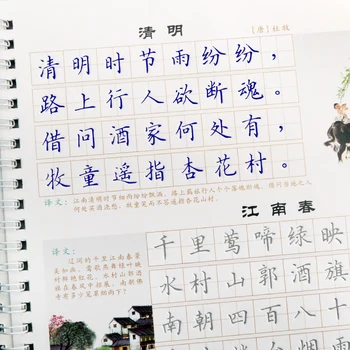 清明
[唐] 杜牧
清明时节雨纷纷，
路上行人欲断魂。
借问酒家何处有，
牧童遥指杏花村。
译文：江南清明时节细雨纷纷飘洒，路上羁旅行人个个落魄断魂。借问当地之人
何处买酒浇愁，牧童笑而不答遥指杏花山村。
江南春
千里莺啼绿映
水村山郭酒旗
南朝四百八十
多少楼台烟雨
译文：
辽阔的千里江南春景